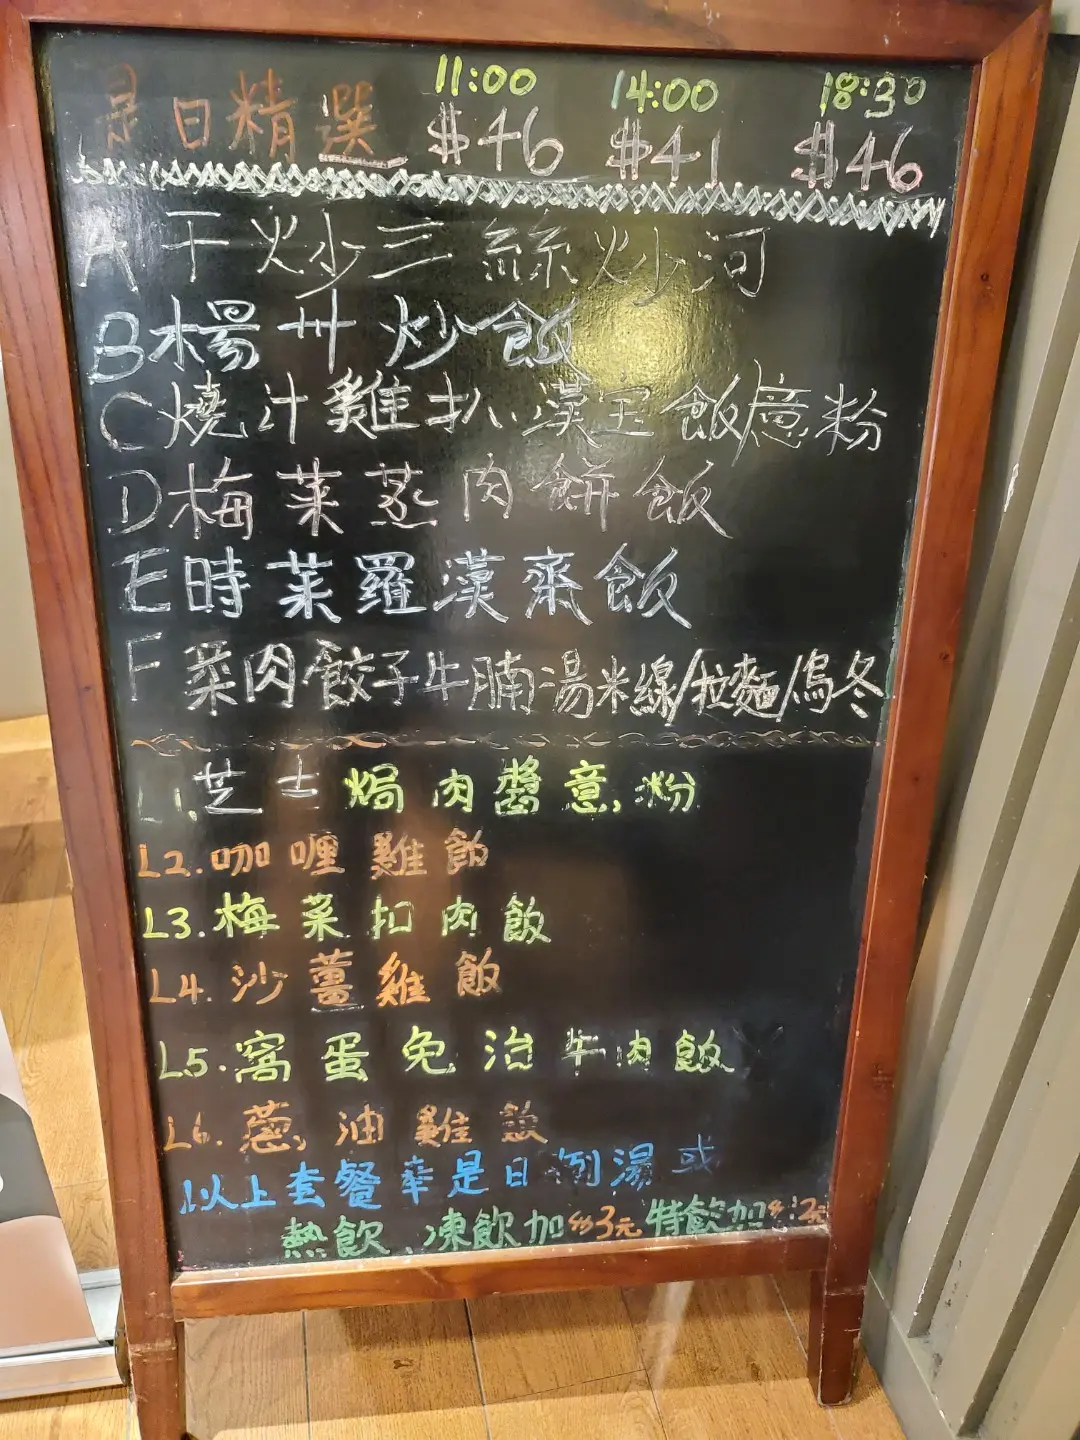 11:00 14:00 18:30
是日精選 $46 $41 $46
A 干炒三絲炒河
B 楊卅炒飯
C 燒汁雞扒漢宝飯/意粉
D 梅菜蒸肉餅飯
E 時菜羅漢齋飯
F 菜肉餃子牛腩湯米線/拉麵/烏冬
L1. 芝士焗肉醬意粉
L2. 咖喱雞飯
L3. 梅菜扣肉飯
L4. 沙薑雞飯
L5. 窩蛋免治牛肉飯
L6. 蔥油雞飯
以上套餐奉是日例湯或
熱飲 凍飲加$3元 特飲加